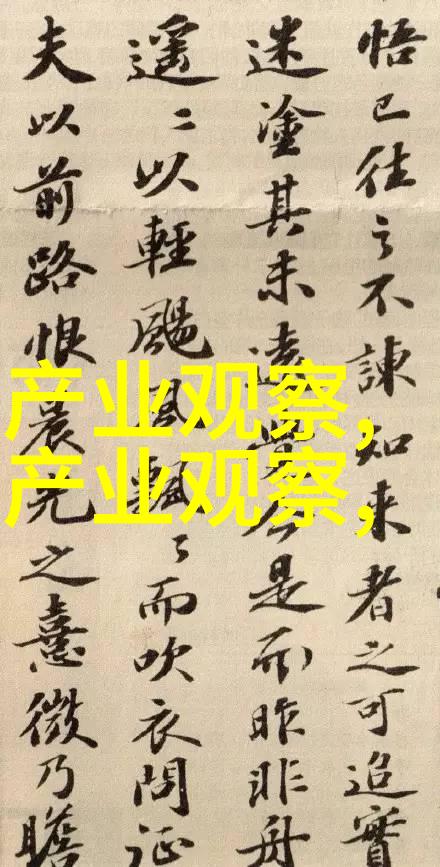 悟已往之不諫知来者之可追實
迷塗其未遠覺今是而昨非舟
遥〻以輕颺風飄〻而吹衣問征
夫以前路恨晨光之熹微乃瞻
产业观察,
产业观察,